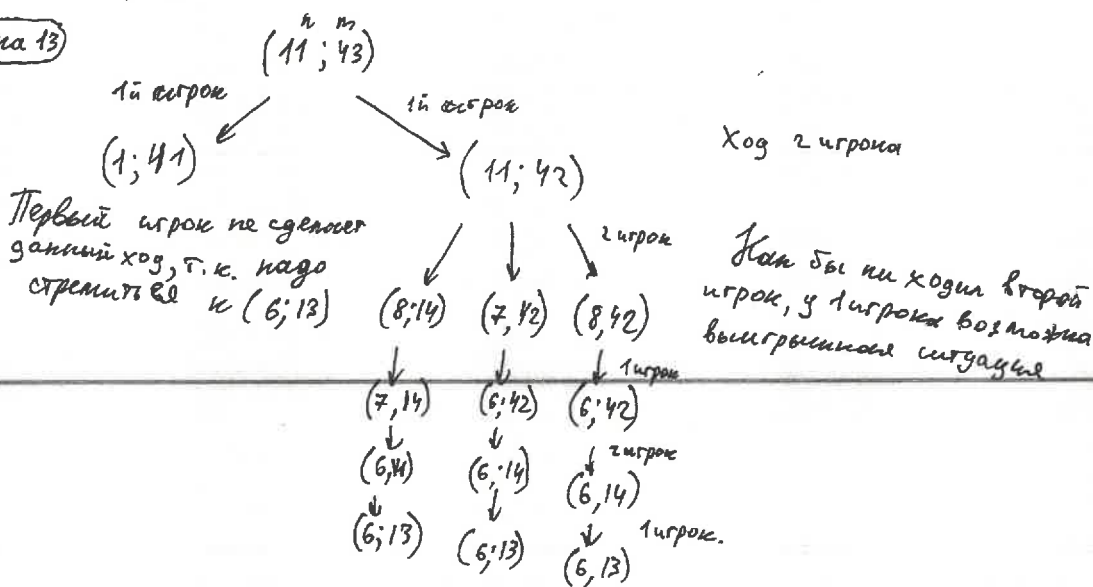 на 13
n m
(11; 43)
1й игрок
1й игрок
(1; 41)
(11; 42)
Ход 2 игрока
Первый игрок не сделает
данный ход, т.к. надо
стремиться к (6; 13)
2 игрок
(8;14) (7,42) (8,42)
Как бы ни ходил второй
игрок, у 1 игрока возможна
выигрышная ситуация
1 игрок
(7,14) (6;42) (6;42)
2 игрок
(6,14) (6,14) (6,14)
1 игрок.
(6;13) (6;13) (6,13)